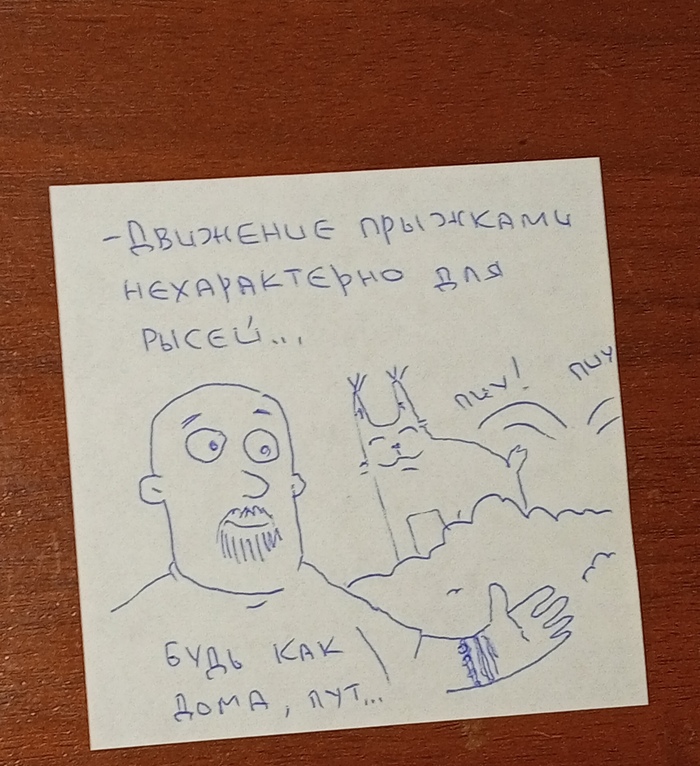 - ДВИЖЕНИЕ ПРЫЖКАМИ
НЕХАРАКТЕРНО ДЛЯ
РЫСЕЙ...
ПИУ! ПИУ
БУДЬ КАК
ДОМА, ПУТ...